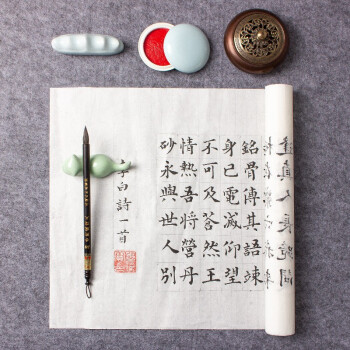 逢真人長跪問
銘骨傳其語竦
身已電滅仰望
不可及蒼然五
情熱吾將營丹
砂永與世人別
李白詩一首